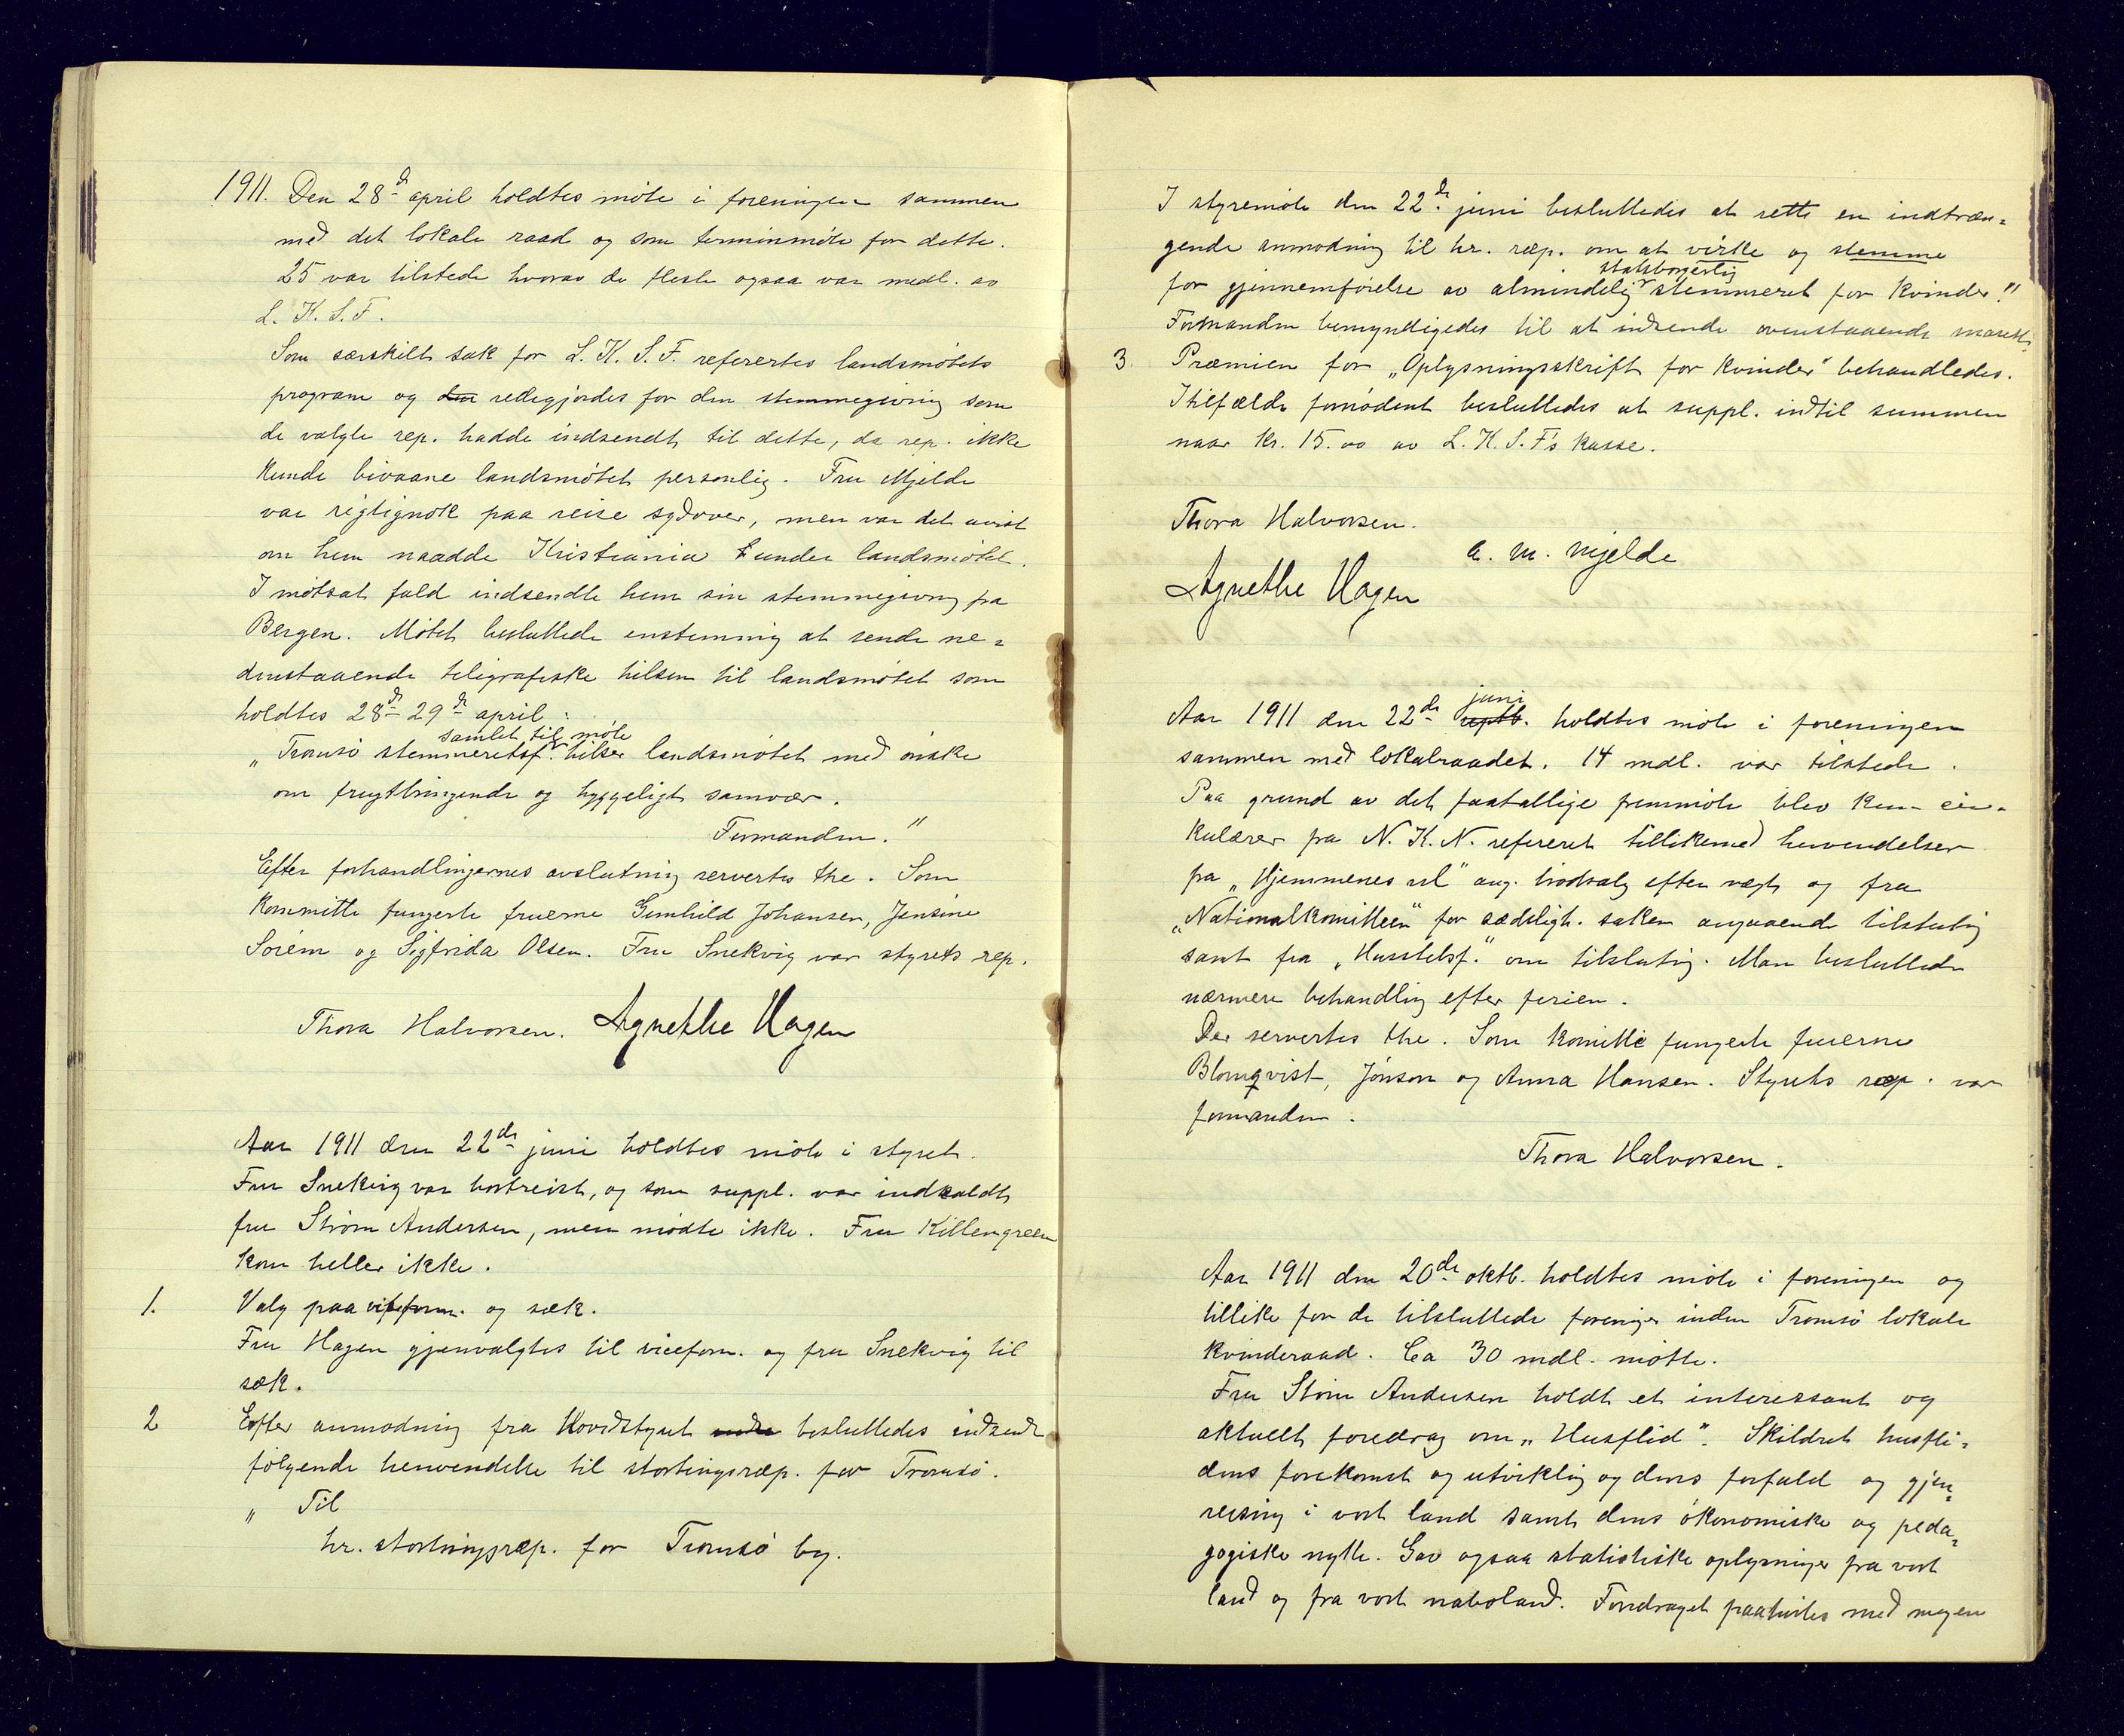 1911. Den 28d april holdtes møte i foreningen sammen
med det lokale raad og som terminmøte for dette.
25 var tilstede hvorav de fleste ogsaa var medl. av
L. K. S. F.
Som særskilt sak for L. K. S. F. refertes landsmøtets
program og den redegjordes for den stemmegivning som
de valgte rep. hadde indsendt til dette, da rep. ikke
kunde bivaane landsmøtet personlig. Fru Mjelde
var rigtignok paa reise sydover, men var det uvist
om hun naadde Kristiania under landsmøtet.
I motsat fald indsendte hun sin stemmegivng fra
Bergen. Møtet besluttede enstemmig at sende ne=
denstaaende telegrafiske hilsen til landsmøtet som
holdtes 28d 29d april:
samlet til møte
„Tromsø stemmeretsf. hilser landsmøtet med ønske
om frugtbringende og hyggeligt samvær.
Formanden."
Efter forhandlingernes avslutning servertes the. Som
Kommitte fungerte fruerne Gunhild Johansen, Jensine
Soiem og Sigfrida Olsen. Fru Snekvig var styrets rep.
Thora Halvorsen. Agnethe Hagen
Aar 1911 den 22de juni holdtes møte i styret.
Fru Snekvig var bortreist, og som suppl. var indkaldt
fru Strøm Andersen, men mødte ikke. Fru Killengreen
kom heller ikke.
1. Valg paa viceform. og sæk.
Fru Hagen gjenvalgtes til viceform. og fru Snekvig til
sæk.
2 Efter anmodning fra Hovedstyret besluttedes indsendt
følgende henvendelse til stortingsræp. for Tromsø.
„ Til
hr. stortingsræp. for Tromsø by.
I styremøte den 22de juni besluttedes at rette en indtræn=
gende anmodning til hr. ræp. om at virke og stemme
statsborgerlig
for gjennemførelse av almindelig stemmeret for kvinder."
Formanden bemyndigedes til at indsende ovenstaaende
3. Præmien for „Oplysningsskrift for kvinder" behandledes.
I tilfælde fornødent besluttedes at suppl. indtil summen
naar kr. 15.00 av L. K. S. F's kasse.
Thora Halvorsen.
A. M. Mjelde
Agnethe Hagen
juni
Aar 1911 den 22de septb. holdtes møte i foreningen
sammen med lokalraadet. 14 mdl. var tilstede.
Paa grund av det faatallige fremmøte blev kun cir-
kulærer fra N. K. N. refereret tillikemed henvendelser
fra „Hjemmenes vel" ang. brødsalg efter vægt og fra
„Nationalkomitteen" for sædeligh. saken angaaende tilslutnig
samt fra „Husstelsf." om tilslutnig. Man besluttede
nærmere behandling efter ferien.
Der servertes the. Som komitté fungerte fruerne
Blomqvist, Jonson og Anna Hansen. Styrets ræp. var
formanden.
Thora Halvorsen.
Aar 1911 den 20de oktb. holdtes møte i foreningen og
tillike for de tilsluttede foreninger inden Tromsø lokale
kvinderaad. Ca 30 mdl. møtte.
Fru Strøm Andersen holdt et interessant og
aktuelt foredrag om „Husflid". Skildret husfli=
dens forekomst og utvikling og dens forfald og gjen=
reisning i vort land samt dens økonomiske og peda=
gogiske nytte. Gav ogsaa statistiske oplysninger fra vort
land og fra vort naboland. Foredraget paahørtes med megen